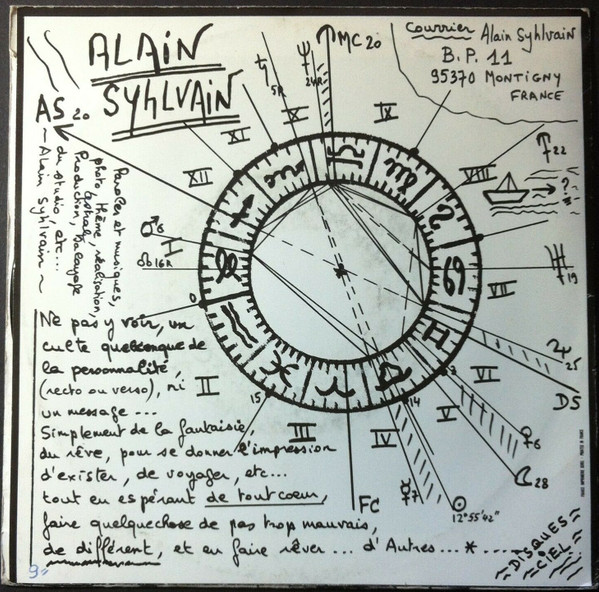 ALAIN
SYHLVAIN
Courrier Alain Syhlvain
B.P. 11
95370 MONTIGNY
FRANCE
MC 20
AS 20
5R
24R
XI
X
IX
XII
VIII
22
→ ?
6
I
16R
VII
19
Paroles et musiques,
photo thème, réalisation,
astral
Production, balayage
du studio, etc...
~ Alain Syhlvain ~
0
II
15
III
IV
14
V
VI
25
DS
6
28
7
12°55'42"
FC
Ne pas y voir, un
culte quelconque de
la personnalité,
(recto ou verso), ni
un message...
Simplement de la fantaisie,
du rêve, pour se donner l'impression
d'exister, de voyager, etc...
tout en espérant de tout coeur,
faire quelquechose de pas trop mauvais,
de différent, et en faire rêver... d'Autres...*
DISQUES
CIEL